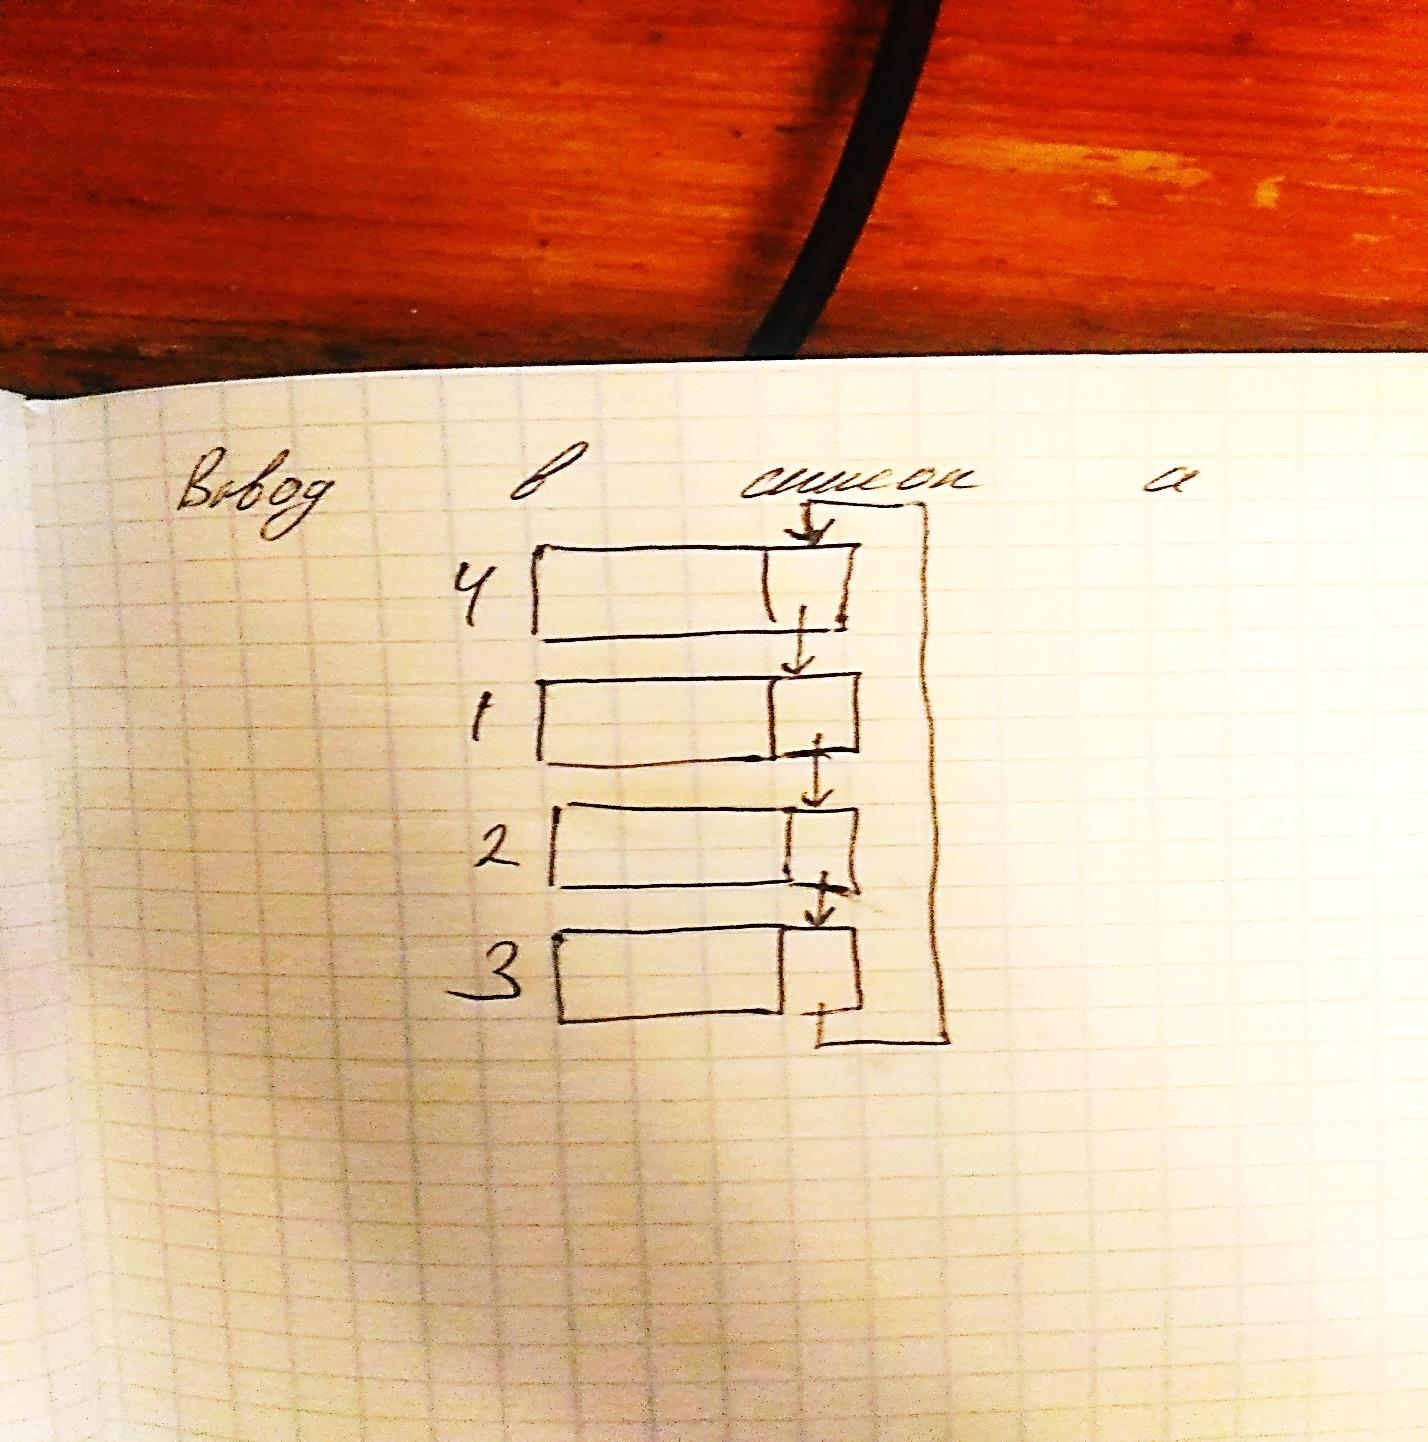 Ввод в список а
4
1
2
3